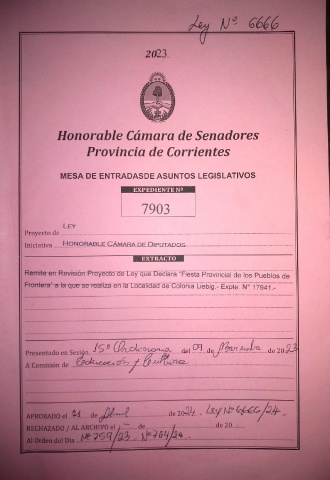 Ley Nº 6666
2023.
Honorable Cámara de Senadores
Provincia de Corrientes
MESA DE ENTRADASDE ASUNTOS LEGISLATIVOS
EXPEDIENTE Nº
7903
Proyecto de LEY
Iniciativa HONORABLE CÁMARA DE DIPUTADOS
EXTRACTO
Remite en Revisión Proyecto de Ley que Declara "Fiesta Provincial de los Pueblos de
Frontera" a la que se realiza en la Localidad de Colonia Liebig.- Expte. N° 17941.-
Presentado en Sesión 15º Ordinaria del 09 de Noviembre de 2023
A Comisión de Educación y Cultura
APROBADO el 21 de de 2024. Ley Nº 6666/24.
RECHAZADO / AL ARCHIVO el - de de 20
Al Orden del Día Nº 759/23 Nº 704/24.